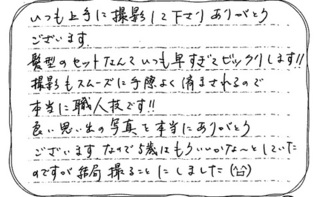 いつも上手に撮影して下さりありがとう
ございます
髪型のセットなんていつも早すぎてビックリします!!
撮影もスムーズに手際よく済まされるので
本当に職人技です!!
良い思い出の写真を本当にありがとう
ございます なので5歳はもういいかな〜としていた
のですが結局撮ることにしました(笑)